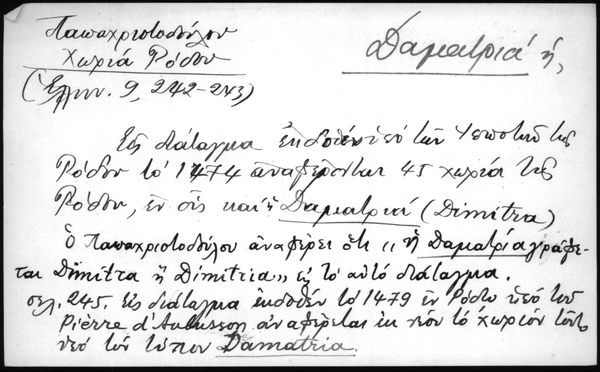 Παπαχριστοδούλου
Χωριά Ρόδου
(Ἑλλην. 9, 242-243)
Δαματριά ἡ,
Εἰς διάταγμα ἐκδοθὲν ὑπὸ τῶν Ἱπποτῶν τῆς
Ρόδου τὸ 1474 ἀναφέρονται 45 χωρία τῆς
Ρόδου, ἐν οἷς καὶ ἡ Δαματριά (Dimitra)
ὁ Παπαχριστοδούλου ἀναφέρει ὅτι "ἡ Δαματρία γράφε-
ται Dimitra ἢ Dimitria" εἰς τὸ αὐτὸ διάταγμα.
σελ. 245. Εἰς διάταγμα ἐκδοθὲν τὸ 1479 ἐν Ρόδῳ ὑπὸ τοῦ
Pierre d'Aubusson ἀναφέρεται ἐκ νέου τὸ χωρίον τοῦτο
ὑπὸ τὸν τύπον Damatria.